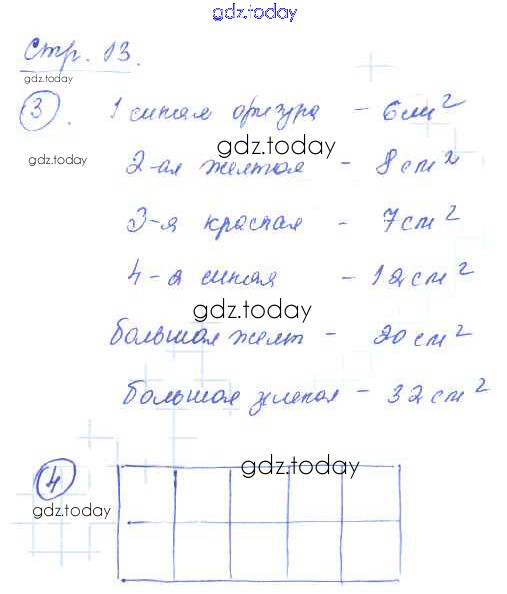 gdz.today
Стр. 13.
gdz.today
3. 1 синяя фигура - 6см²
gdz.today
gdz.today
2-ая желтая - 8см²
3-я красная - 7см²
4-а синяя - 12см²
gdz.today
большая желт - 20см²
большая зеленая - 32см²
gdz.today
4
gdz.today